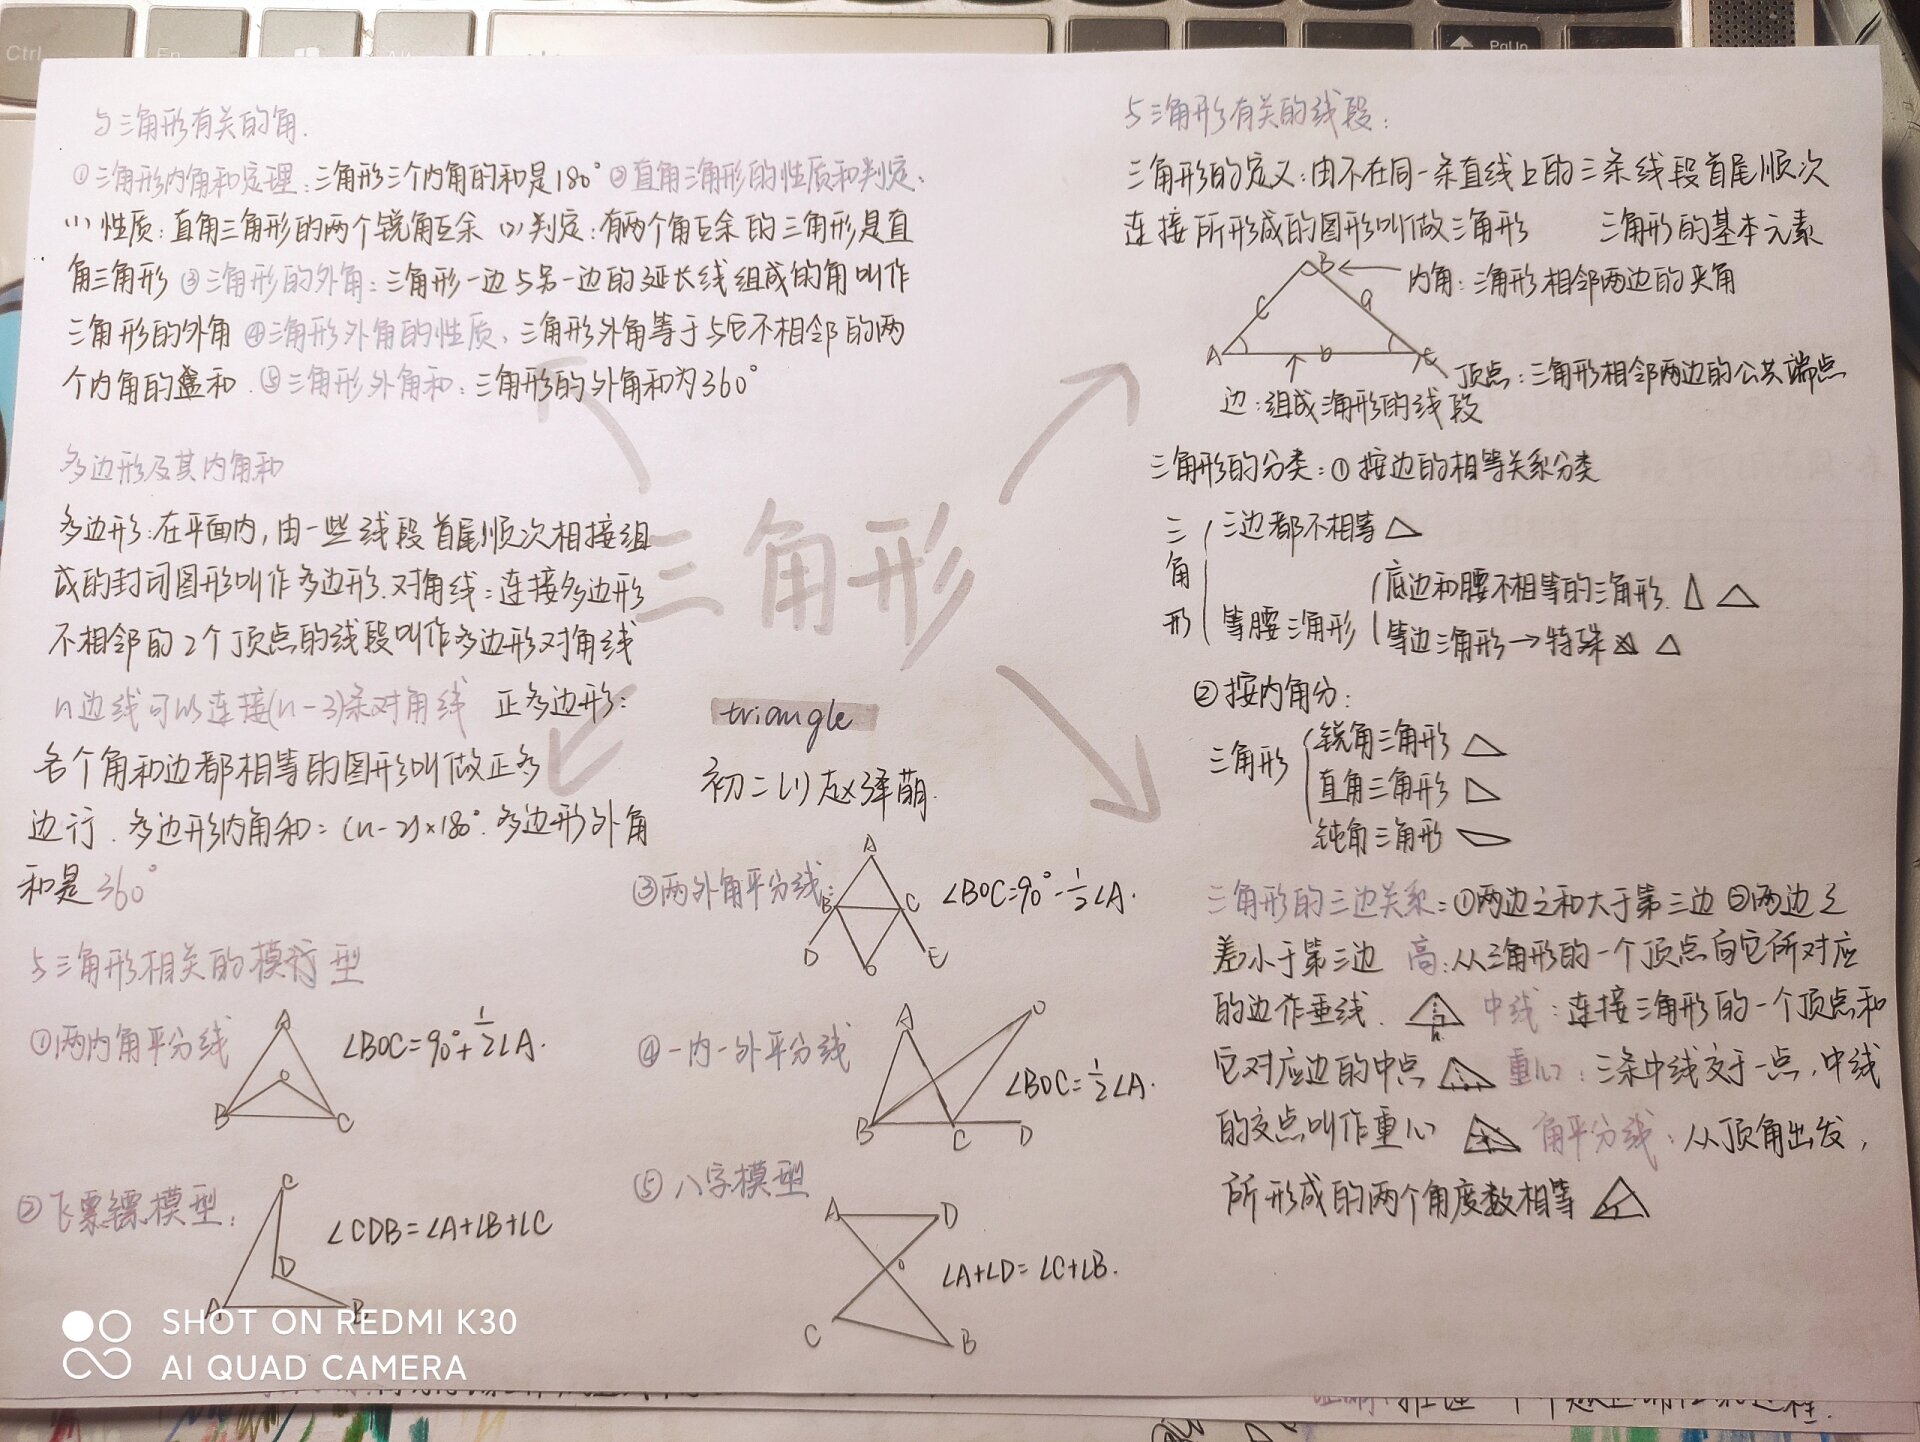 与三角形有关的角.
①三角形内角和定理:三角形三个内角的和是180° ②直角三角形的性质和判定:
(1)性质:直角三角形的两个锐角互余 (2)判定:有两个角互余的三角形是直
角三角形 ③三角形的外角:三角形一边与另一边的延长线组成的角叫作
三角形的外角 ④三角形外角的性质:三角形外角等于与它不相邻的两
个内角的和.⑤三角形外角和:三角形的外角和为360°
多边形及其内角和
多边形:在平面内,由一些线段首尾顺次相接组
成的封闭图形叫作多边形.对角线:连接多边形
不相邻的2个顶点的线段叫作多边形对角线
n边线可以连接(n-3)条对角线 正多边形:
各个角和边都相等的图形叫做正多
边行.多边形内角和=(n-2)×180°.多边形外角
和是360°
与三角形相关的模型
①两内角平分线
A
O
B C
∠BOC=90°+1/2∠A.
②飞镖模型:
C
D
A B
∠CDB=∠A+∠B+∠C
三角形
triangle
初二(1)赵泽萌.
③两外角平分线:
A
B C
D O E
∠BOC=90°-1/2∠A.
④一内一外平分线
A O
B C D
∠BOC=1/2∠A.
⑤八字模型
A D
O
C B
∠A+∠D=∠C+∠B.
与三角形有关的线段:
三角形的定义:由不在同一条直线上的三条线段首尾顺次
连接所形成的图形叫做三角形 三角形的基本元素
B
内角:三角形相邻两边的夹角
c a
A b C
顶点:三角形相邻两边的公共端点
边:组成三角形的线段
三角形的分类:①按边的相等关系分类
三角形
三边都不相等
等腰三角形
底边和腰不相等的三角形.
等边三角形→特殊
②按内角分:
三角形
锐角三角形
直角三角形
钝角三角形
三角形的三边关系:①两边之和大于第三边②两边之
差小于第三边 高:从三角形的一个顶点向它所对应
的边作垂线. h 中线:连接三角形的一个顶点和
它对应边的中点 重心:三条中线交于一点,中线
的交点叫作重心 角平分线:从顶角出发,
所形成的两个角度数相等
Ctrl
Fn
Alt
PgUp
SHOT ON REDMI K30
AI QUAD CAMERA